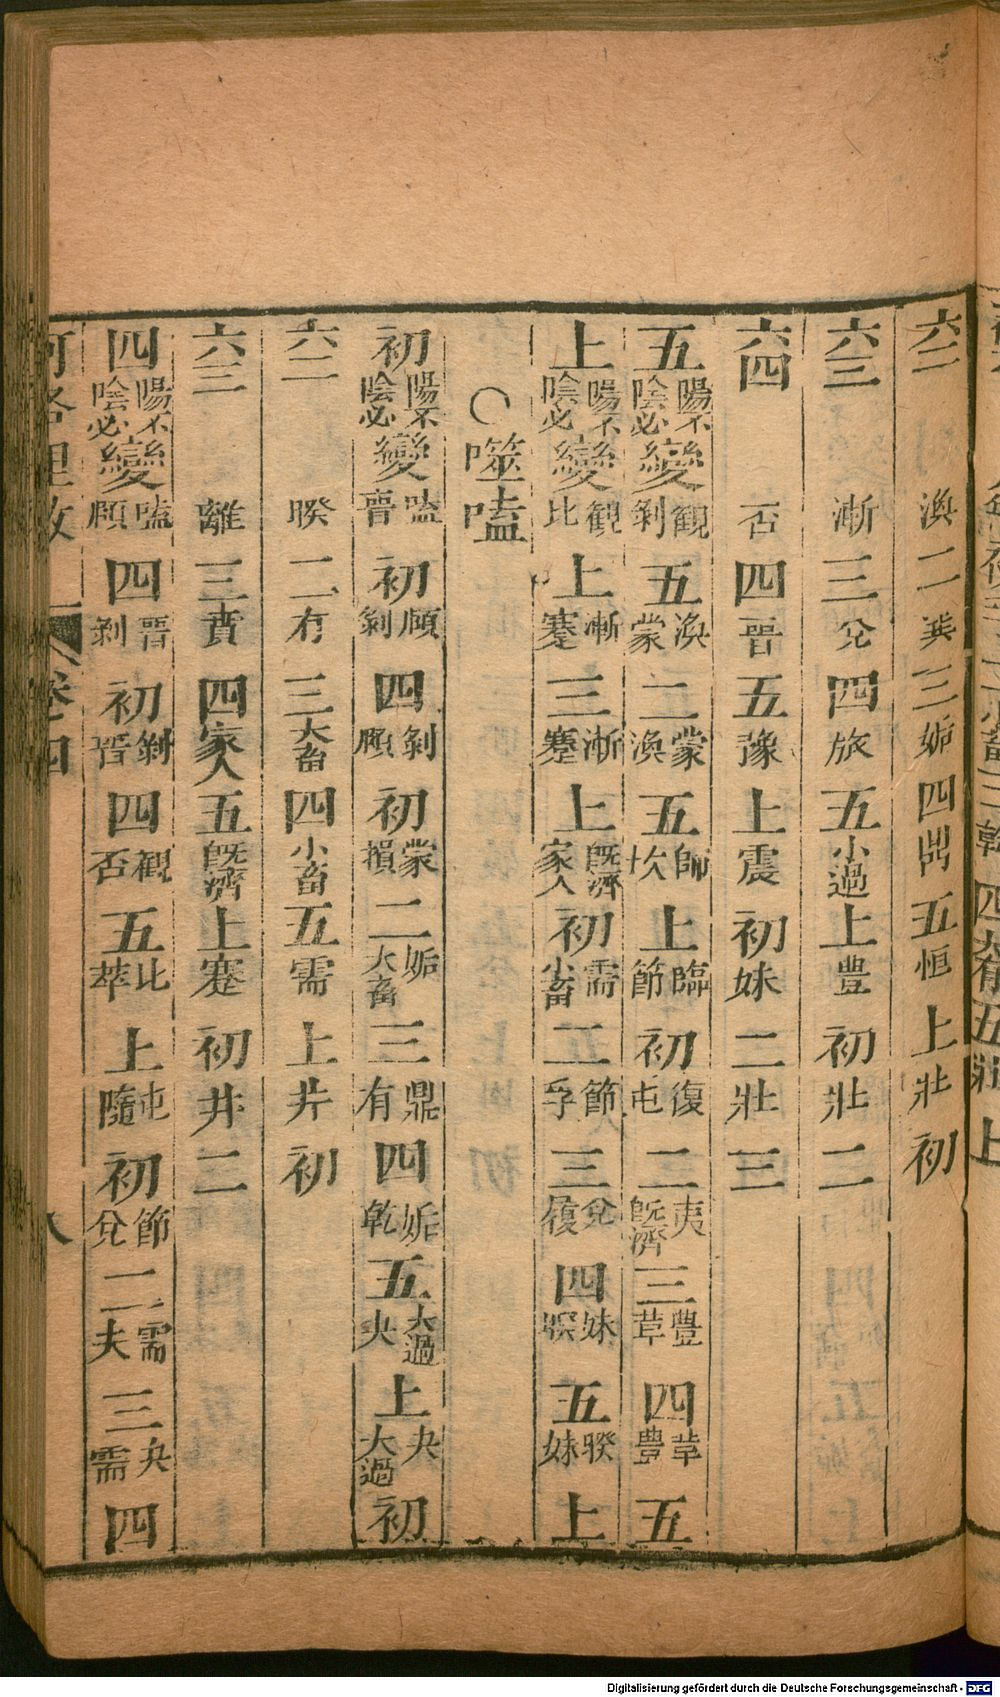 六二渙二巽三姤四訟五恒上壯初
六三漸三兌四旅五小過上豊初壯二
六四否四晉五豫上震初妹二壯三
五陽不陰必變觀剝五渙蒙二蒙渙五師坎上臨節初復屯二夷旣濟三豊革四革豊五
上陽不陰必變観比上漸蹇三漸蹇上旣濟家人初需小畜二節孚三兌履四妹睽五睽妹上
○噬嗑
初陽不陰必變嗑晉初頤剝四剝頤初蒙損二姤大畜三鼎有四姤乾五大過夬上夬大過初
六二睽二有三大畜四小畜五需上井初
六三離三賁四家人五旣濟上蹇初井二
四陽不陰必變嗑頤四晉剝初剝晉四観否五比萃上屯隨初節兌二需夫三夬需四
河洛理數 卷四 八
Digitalisierung gefördert durch die Deutsche Forschungsgemeinschaft - DFG